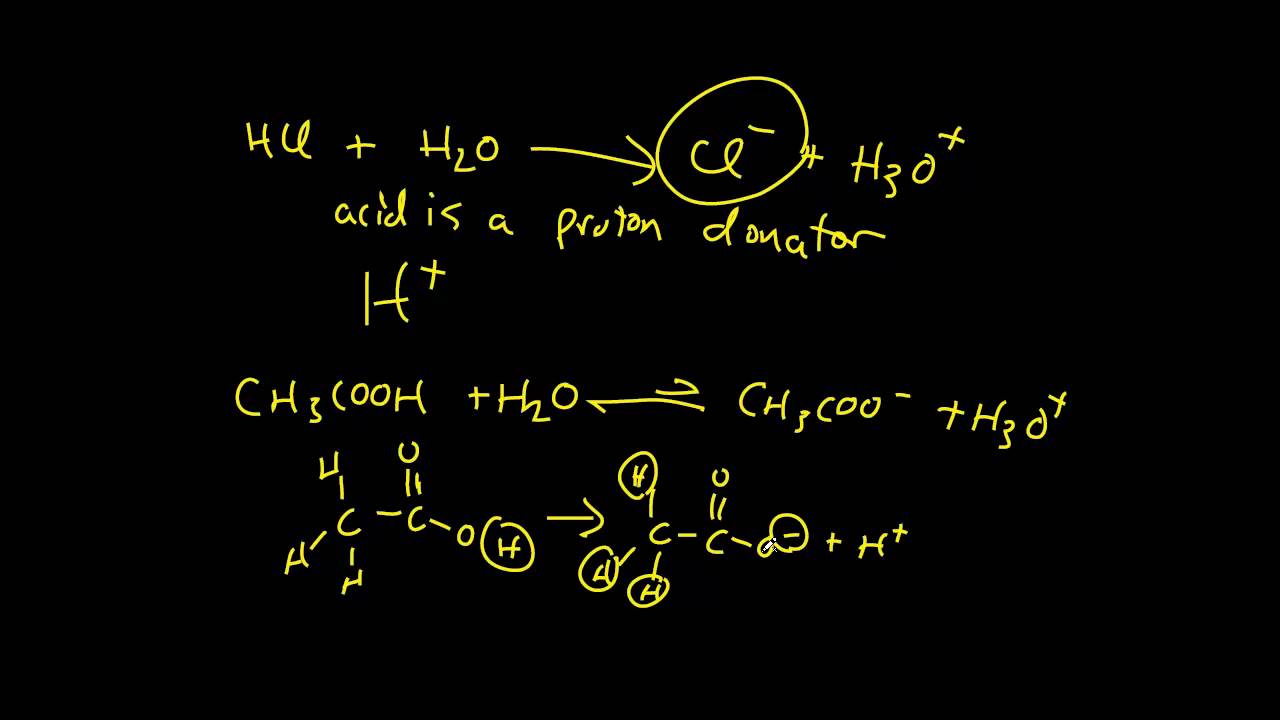 HCl + H₂O → Cl⁻ + H₃O⁺
acid is a proton donator
H⁺
CH₃COOH + H₂O ⇌ CH₃COO⁻ + H₃O⁺
H O H O
H C – C – O H → H C – C – O⁻ + H⁺
H H